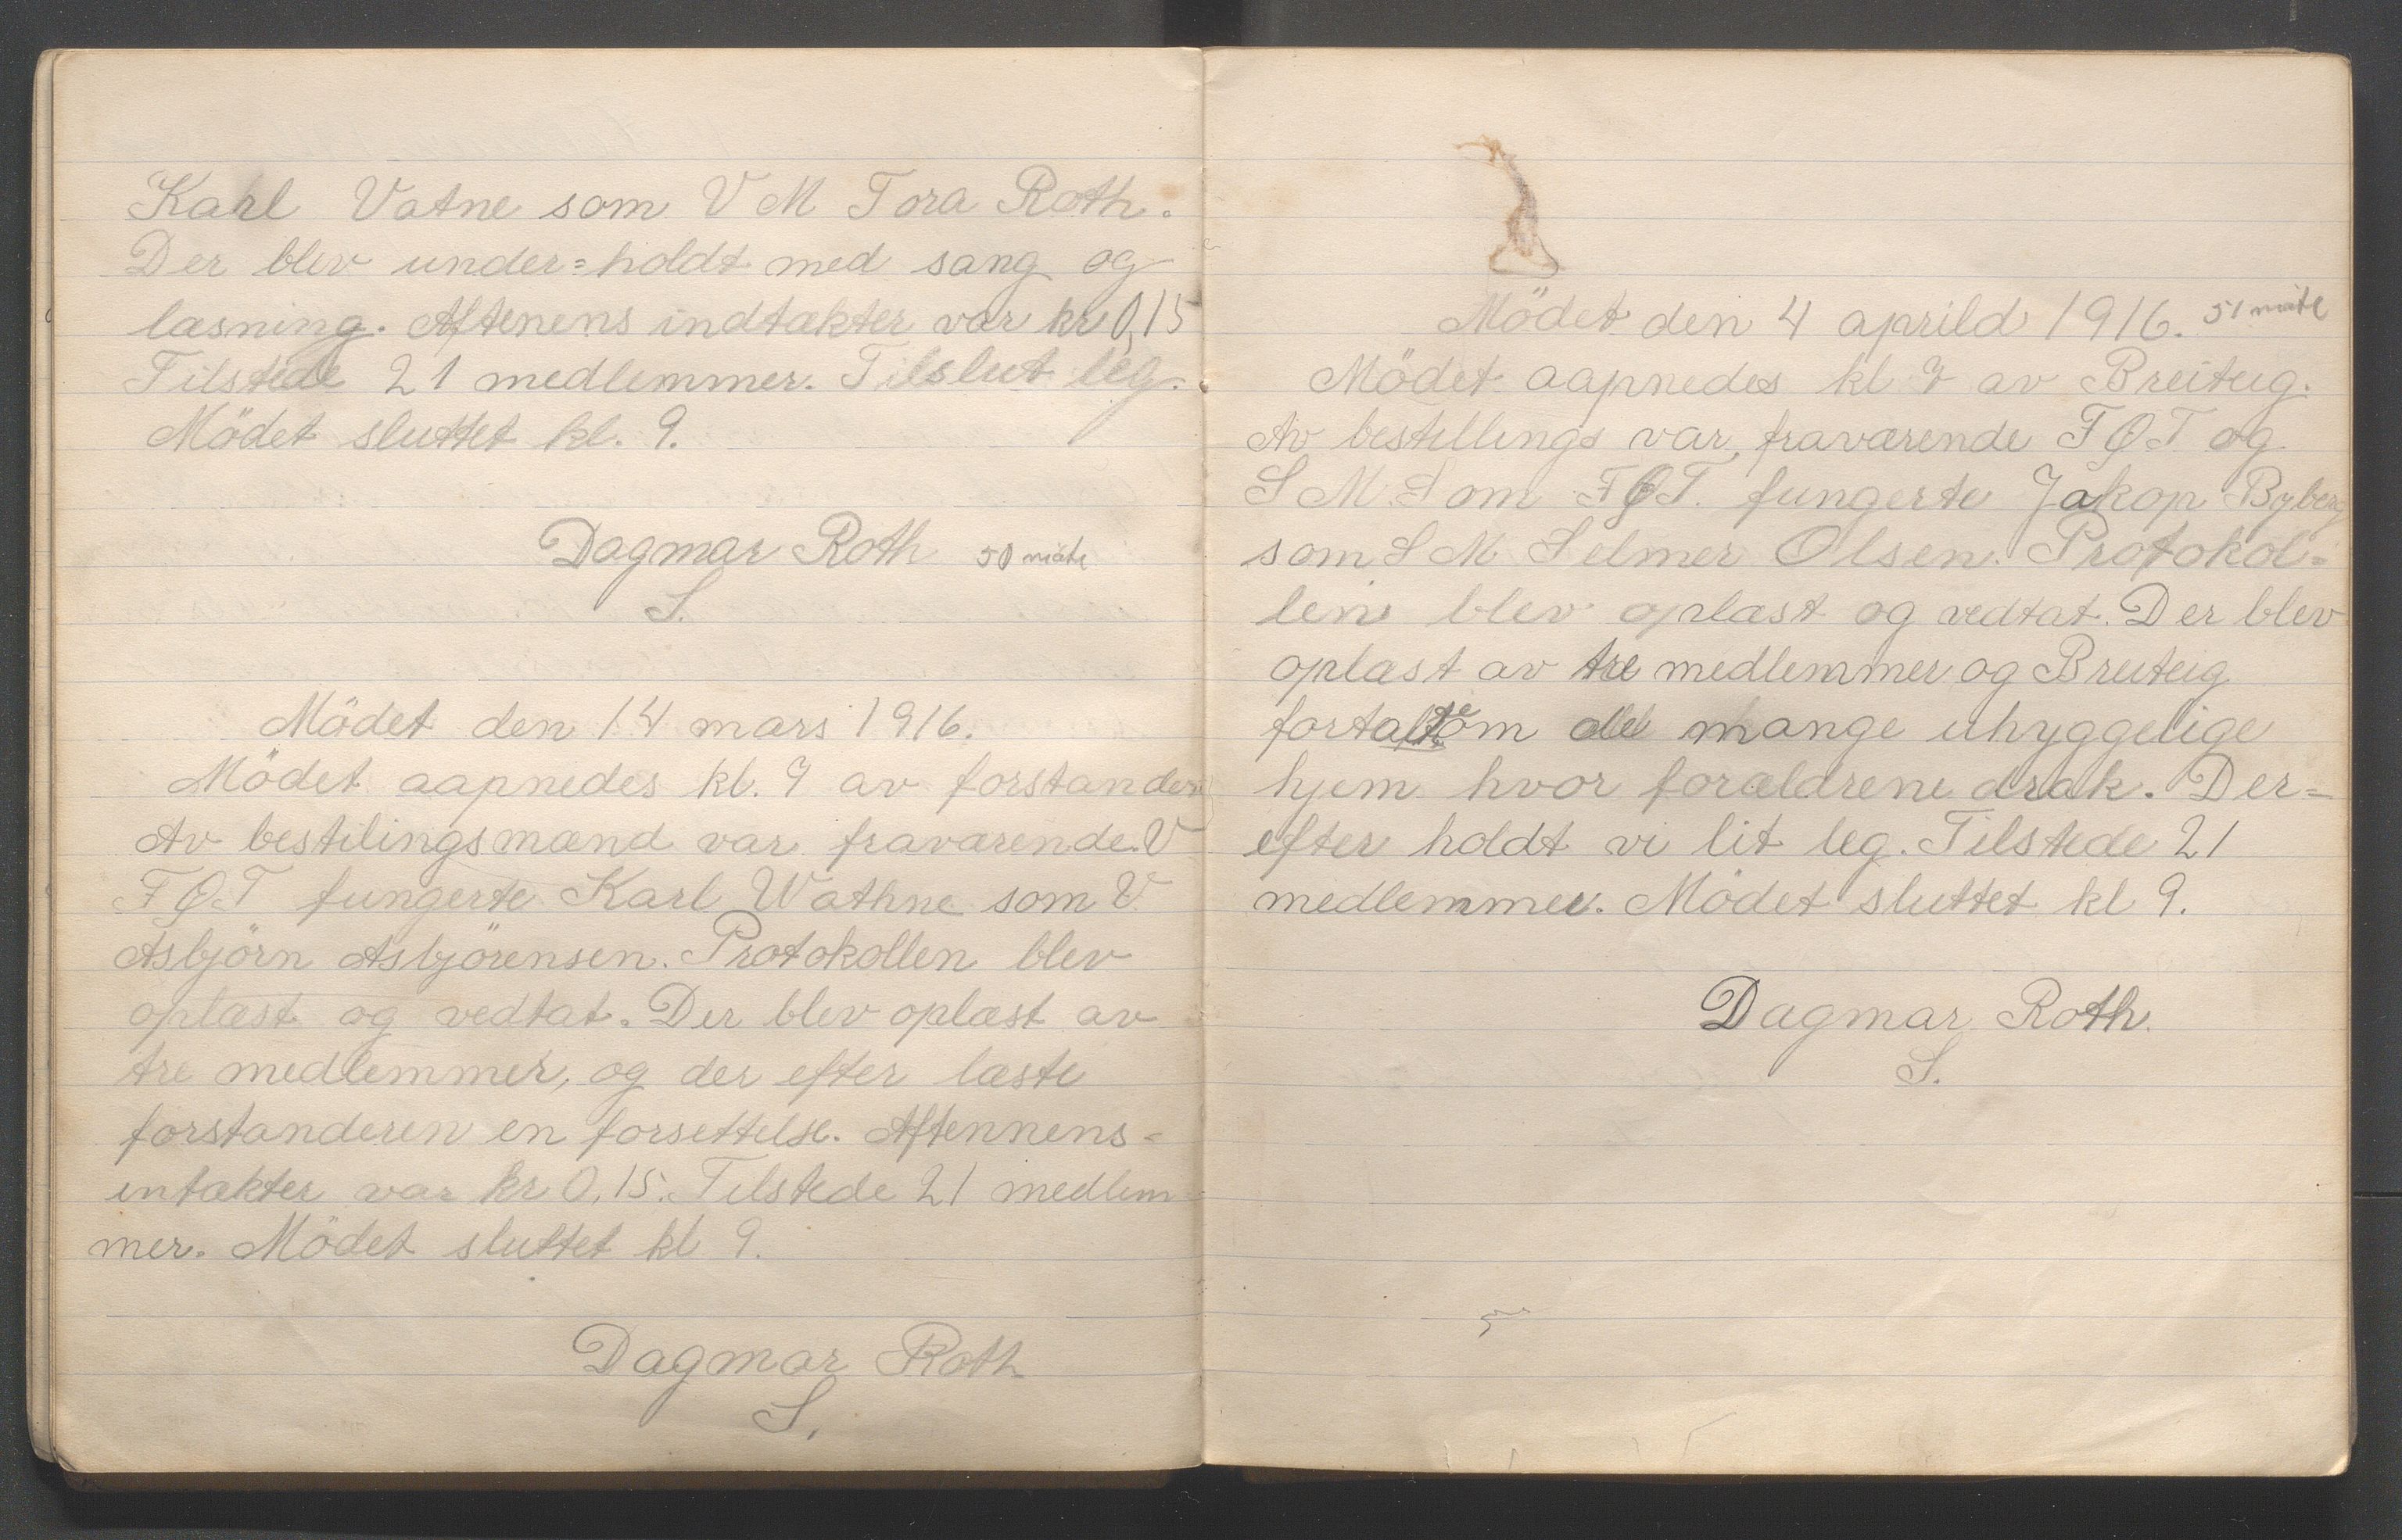 Karl Vatne som V M Tora Roth.
Der blev under=holdt med sang og
læsning. Aftenens indtækter var kr 0,15
Tilstede 21 medlemmer. Tilslut leg.
Mödet sluttet kl. 9.
Dagmar Roth 50 möte
S.
Mödet den 14 mars 1916.
Mödet aapnedes kl. 7 av forstander
Av bestilingsmænd var fraværende. V
FGT fungerte Karl Wathne som V
Asbjörn Asbjörensen. Protokollen blev
oplæst og vedtat. Der blev oplæst av
tre medlemmer, og der efter læste
forstanderen en forsettelse. Aftennens-
intækter var kr 0,15. Tilstede 21 medlem
mer. Mödet sluttet kl 9.
Dagmar Roth
S.
Mödet den 4 aprild 1916. 51 möte
Mödet aapnedes kl 7 av Breiteig.
Av bestillings var fraværende FGT og
S M. Som FGT. fungerte Jakop Byberg
som S M Selmer Olsen. Protokol=
len blev oplæst og vedtat. Der blev
oplæst av tre medlemmer og Breiteig
fortalte om de mange uhyggelige
hjem hvor forældrene drak. Der=
efter holdt vi lit leg. Tilstede 21
medlemmer. Mödet sluttet kl 9.
Dagmar Roth.
S.